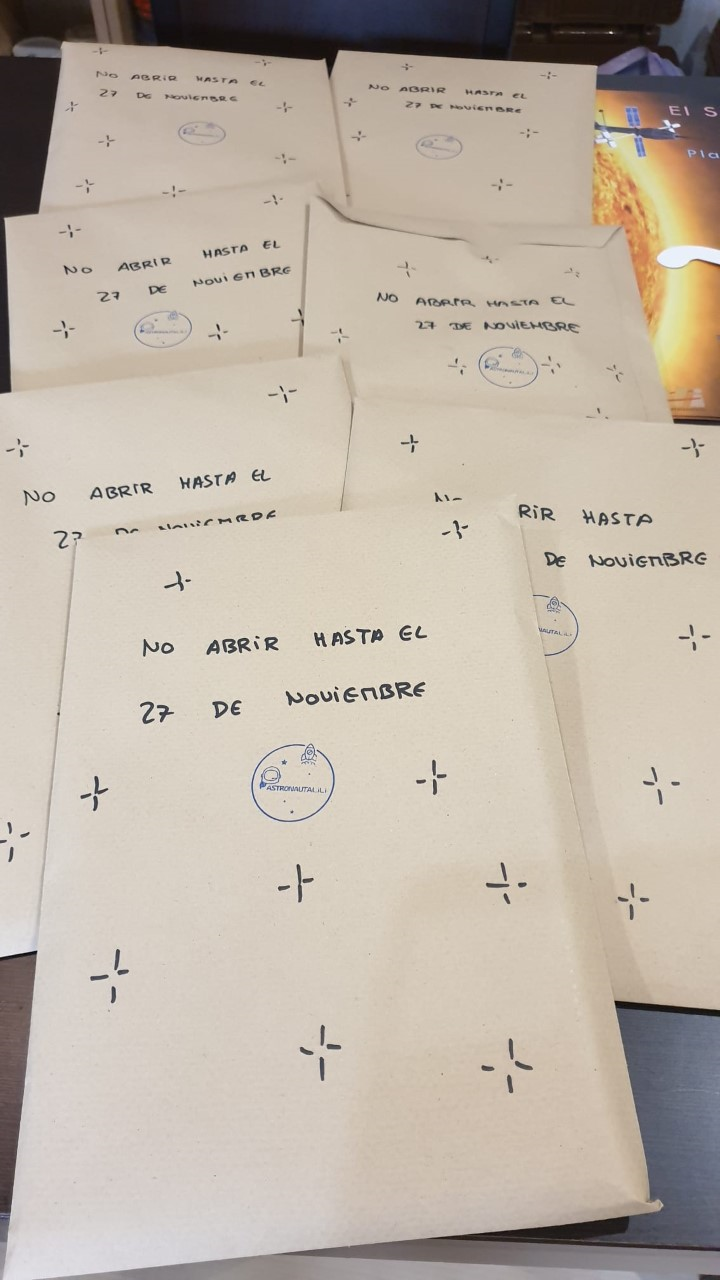 NO ABRIR HASTA EL
27 DE NOVIEMBRE
NO ABRIR HASTA EL
27 DE NOVIEMBRE
El S
Pla
NO ABRIR HASTA EL
27 DE NOVIEMBRE
ASTRONAUTALILI
NO ABRIR HASTA EL
27 DE NOVIEMBRE
ASTRONAUTALILI
NO ABRIR HASTA EL
27 DE NOVIEMBRE
RIR HASTA
DE NOVIEMBRE
NAUTALILI
NO ABRIR HASTA EL
27 DE NOVIEMBRE
ASTRONAUTALILI